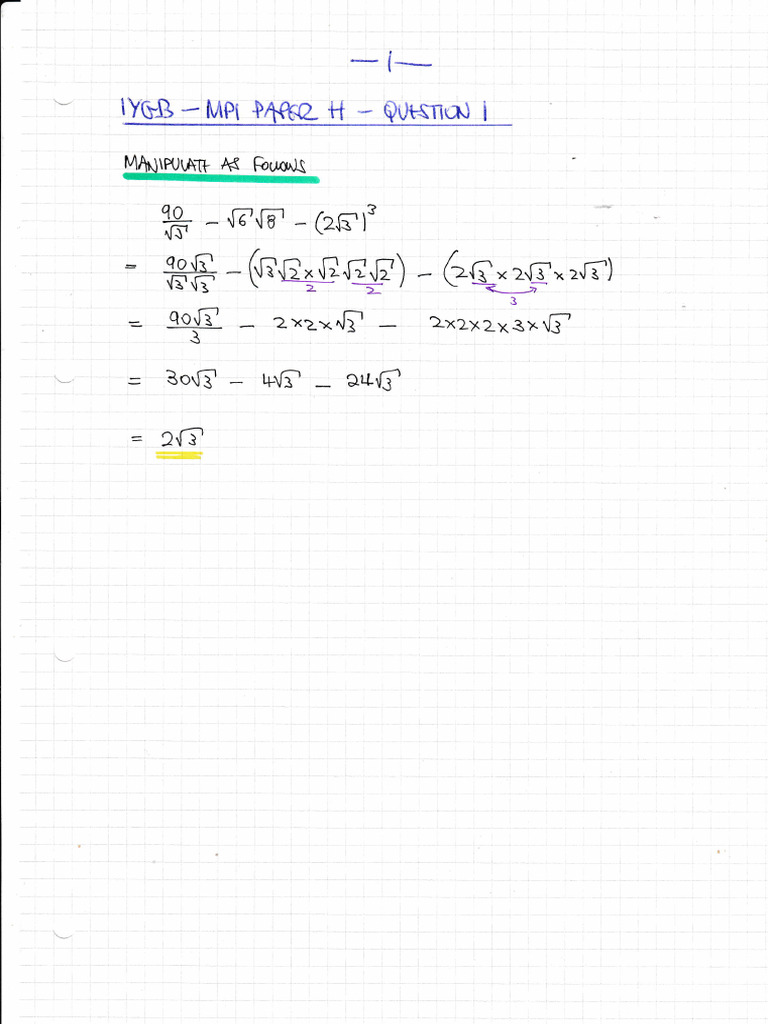 —1—
IYGB – MP1 PAPER H – QUESTION 1
MANIPULATE AS FOLLOWS
90/√3 – √6√8 – (2√3)³
= 90√3/√3√3 – (√3√2×√2√2√2) – (2√3×2√3×2√3)
2 2 3
= 90√3/3 – 2×2×√3 – 2×2×2×3×√3
= 30√3 – 4√3 – 24√3
= 2√3